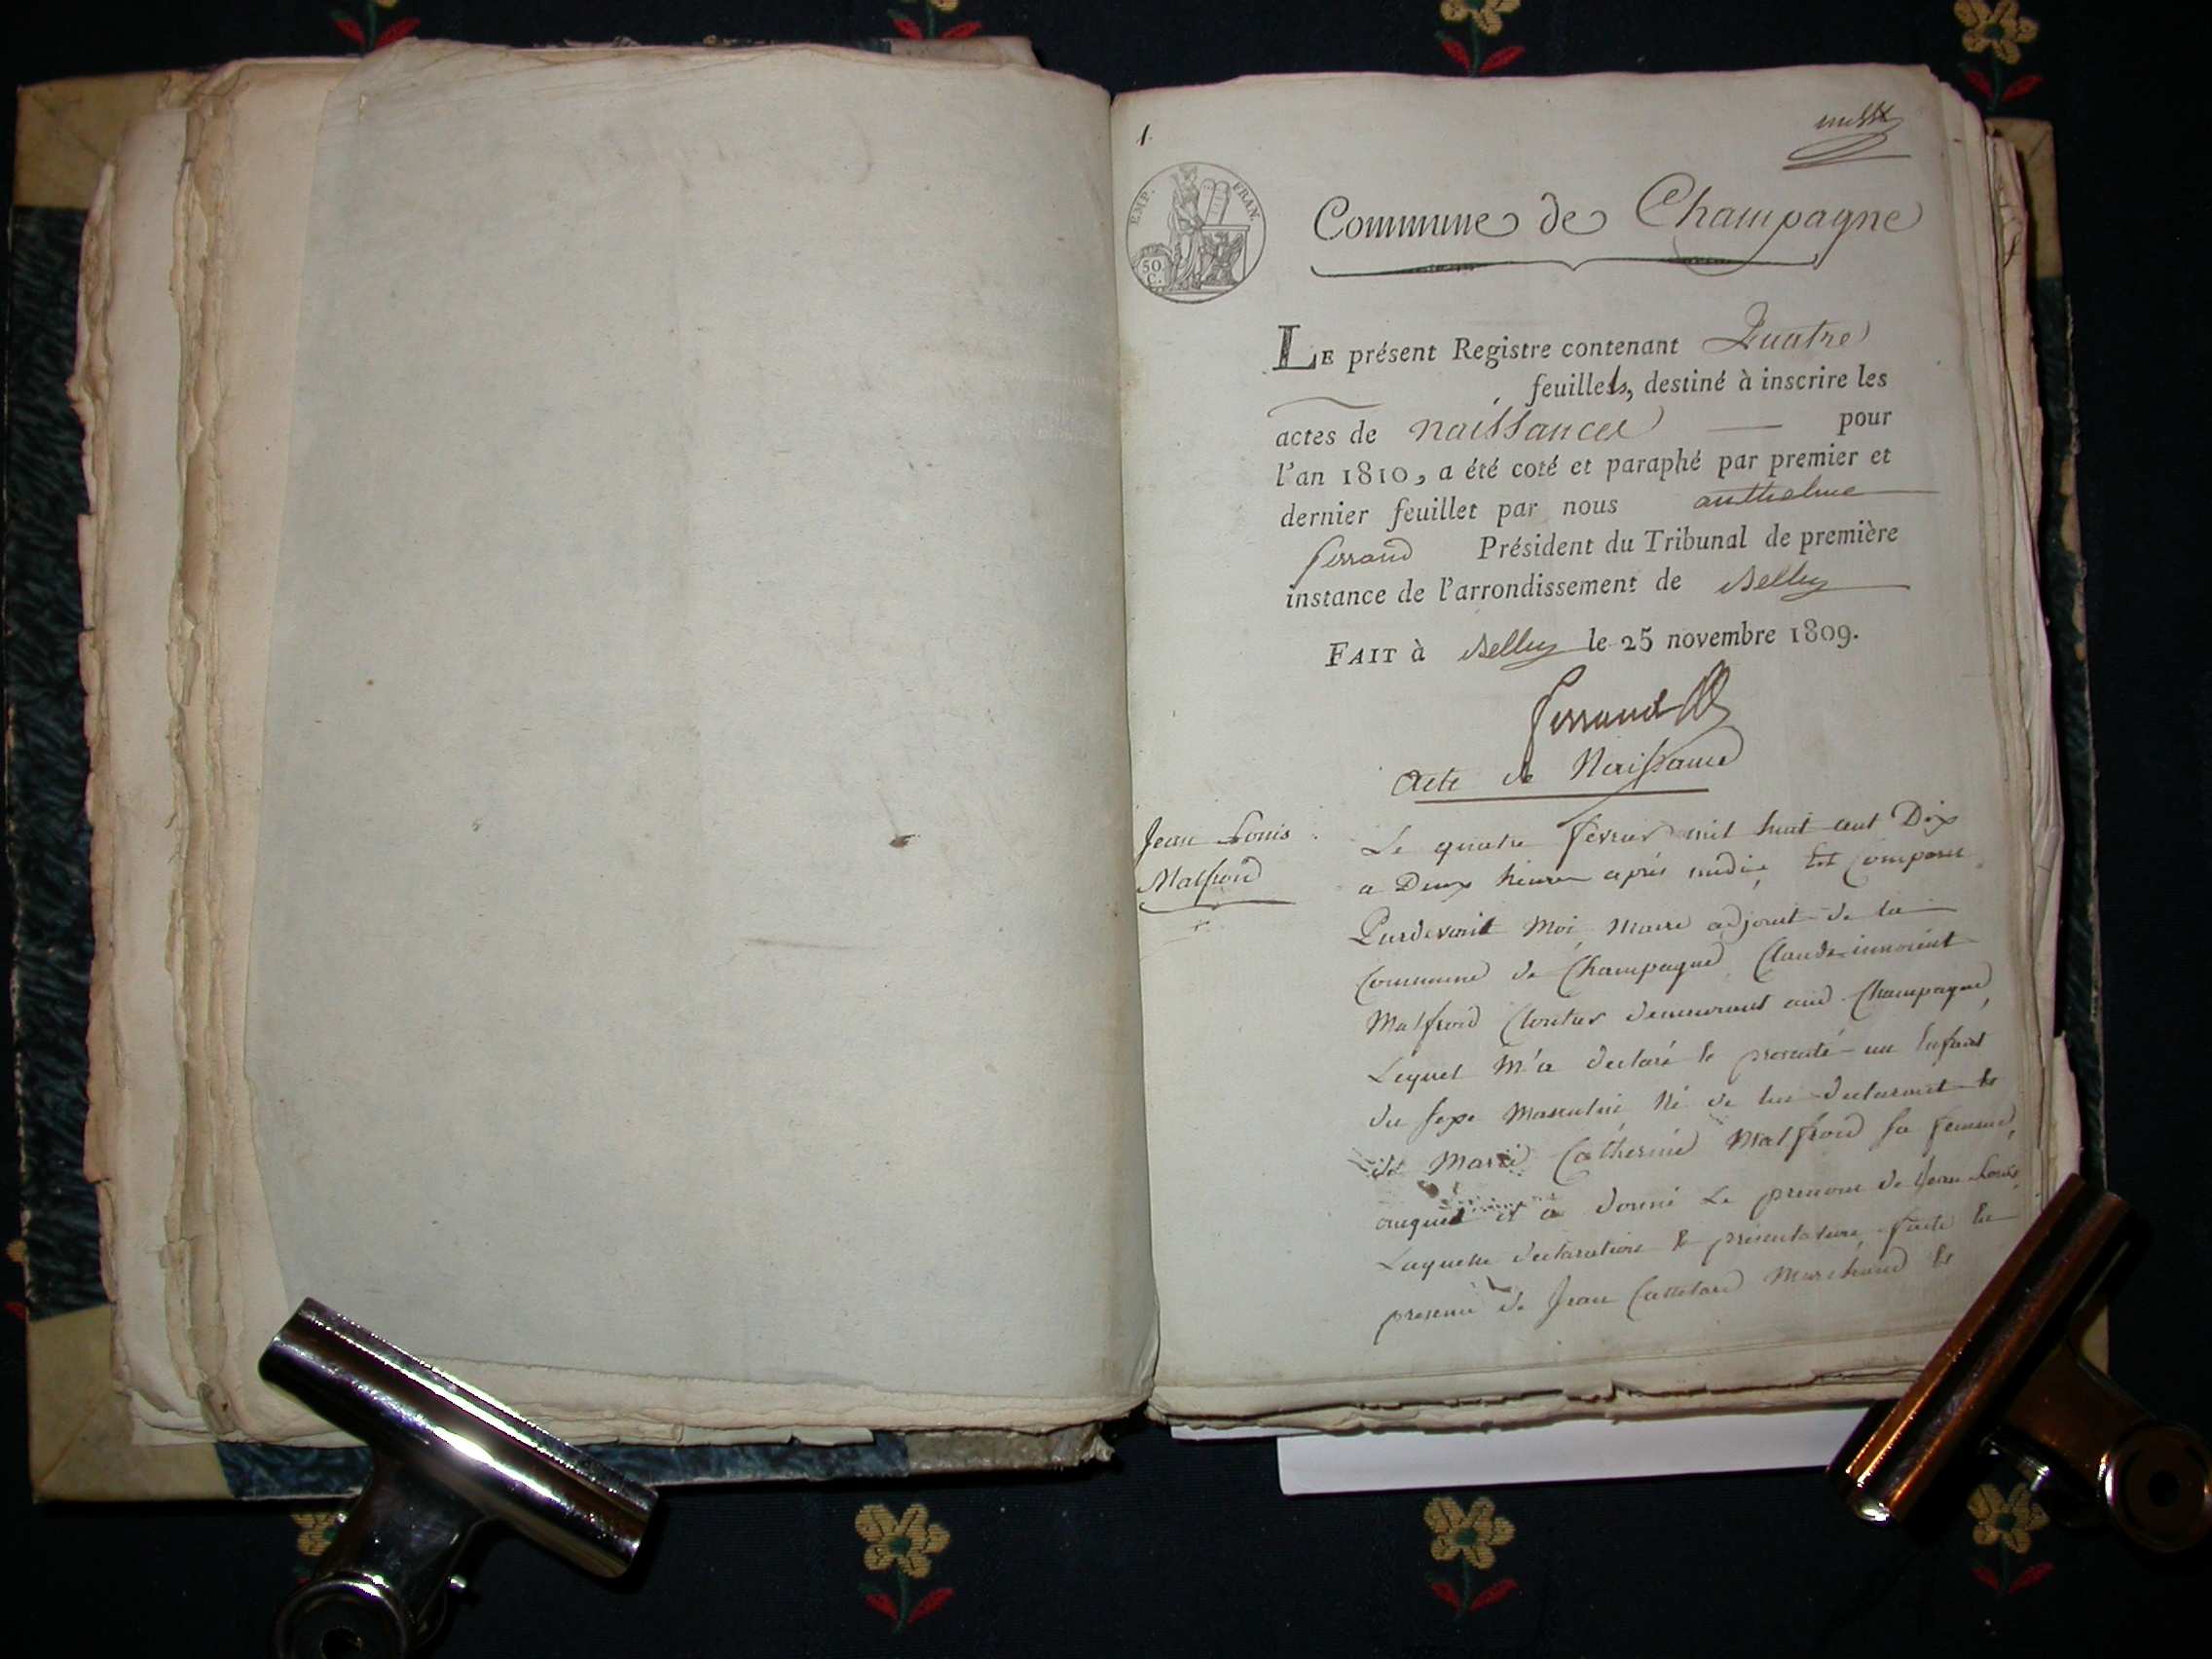 1.
EMP. FRAN.
50 C.
Commune de Champagne
LE présent Registre contenant Quatre
feuillets, destiné à inscrire les
actes de naissances pour
l'an 1810, a été coté et paraphé par premier et
dernier feuillet par nous anthelme
ferrand Président du Tribunal de première
instance de l'arrondissement de Belley
FAIT à Belley le 25 novembre 1809.
ferrand
Acte de Naissance
Jean Louis
Malfroid
Le quatre fevrier mil huit cent Dix
a Deux heures après midi, Est Comparu
Pardevant Moi Maire adjoint de la
Commune de Champagne Claude innocent
Malfroid Cloutier demeurant aud Champagne,
Lequel M'a declaré & presenté un Enfant
du sexe Masculin, Né de lui declarant &
de Marie Catherine Malfroid sa femme,
auquel il a donné Le prenom de Jean Louis,
Laquelle declaration & presentation faite En
presence de Jean Marchand &